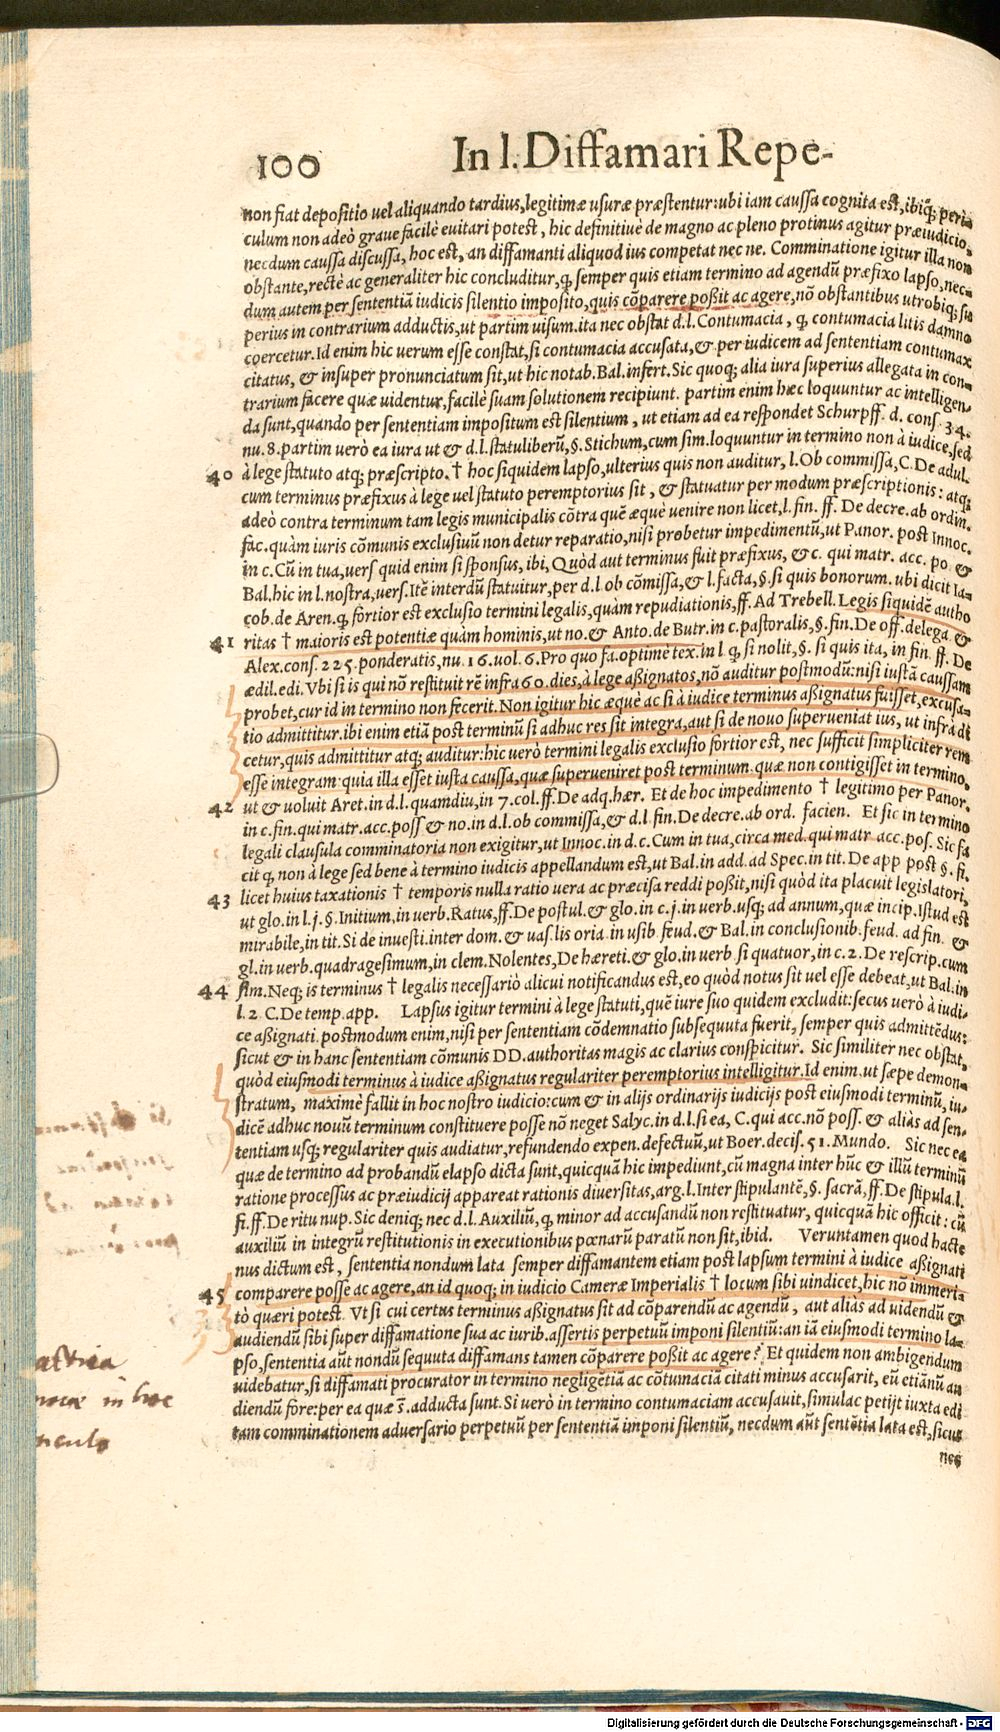 100 In l. Diffamari Repe-
non fiat depositio uel aliquando tardius, legitimæ usuræ præstentur: ubi iam caussa cognita est, ibiq́; peri-
culum non adeò graue facilè euitari potest, hic definitiuè de magno ac pleno protinus agitur præiudicio,
necdum caussa discussa, hoc est, an diffamanti aliquod ius competat nec ne. Comminatione igitur illa non
obstante, rectè ac generaliter hic concluditur, q̃ semper quis etiam termino ad agendũ præfixo lapso, nec-
dum autem per sententiã iudicis silentio imposito, quis cõparere poßit ac agere, nõ obstantibus utrobiq; su
perius in contrarium adductis, ut partim uisum. ita nec obstat d.l. Contumacia, q̃ contumacia litis damno
coercetur. Id enim hic uerum esse constat, si contumacia accusata, & per iudicem ad sententiam contumax
citatus, & insuper pronunciatum sit, ut hic notab. Bal. infert. Sic quoq; alia iura superius allegata in con-
trarium facere quæ uidentur, facilè suam solutionem recipiunt. partim enim hæc loquuntur ac intelligen-
da sunt, quando per sententiam impositum est silentium, ut etiam ad ea respondet Schurpff. d. cons. 34.
nu. 8. partim uerò ea iura ut & d.l. statuliberũ, §. Stichum, cum sim. loquuntur in termino non à iudice, sed
40 à lege statuto atq; præscripto. † hoc siquidem lapso, ulterius quis non auditur, l. Ob commissa, C. De adul.
cum terminus præfixus à lege uel statuto peremptorius sit, & statuatur per modum præscriptionis: atq;
adeò contra terminum tam legis municipalis cõtra quẽ æquè uenire non licet, l. fin. ff. De decre. ab ordin.
fac. quàm iuris cõmunis exclusiuũ non detur reparatio, nisi probetur impedimentũ, ut Panor. post Innoc.
in c. Cũ in tua, uers quid enim si sponsus, ibi, Quòd aut terminus fuit præfixus, & c. qui matr. acc. po. &
Bal. hic in l. nostra, uers. Itẽ interdũ statuitur, per d.l ob cõmissa, & l. facta, §. si quis bonorum. ubi dicit Ia-
cob. de Aren. q̃ fortior est exclusio termini legalis, quàm repudiationis, ff. Ad Trebell. Legis siquidẽ autho
41 ritas † maioris est potentiæ quàm hominis, ut no. & Anto. de Butr. in c. pastoralis, §. fin. De off. delega. &
Alex. cons. 225. ponderatis, nu. 16. uol. 6. Pro quo fa. optimè tex. in l q̃ si nolit, §. si quis ita, in fin. ff. De
ædil. edi. Vbi si is qui nõ restituit rẽ infra 60. dies, à lege aßignatos, nõ auditur postmodũ: nisi iustã caussam
probet, cur id in termino non fecerit. Non igitur hic æquè ac si à iudice terminus aßignatus fuisset, excusa-
tio admittitur. ibi enim etiã post terminũ si adhuc res sit integra, aut si de nouo superueniat ius, ut infrà di
cetur, quis admittitur atq; auditur: hic uerò termini legalis exclusio fortior est, nec sufficit simpliciter rem
esse integram: quia illa esset iusta caussa, quæ superueniret post terminum. quæ non contigisset in termino,
42 ut & uoluit Aret. in d.l. quamdiu, in 7. col. ff. De adq. hær. Et de hoc impedimento † legitimo per Panor.
in c. fin. qui matr. acc. poss & no. in d.l. ob commissa, & d.l. fin. De decre. ab ord. facien. Et sic in termino
legali clausula comminatoria non exigitur, ut Innoc. in d.c. Cum in tua, circa med. qui matr acc. pos. Sic fa
cit q̃ non à lege sed bene à termino iudicis appellandum est, ut Bal. in add. ad Spec. in tit. De app post §. fi.
43 licet huius taxationis † temporis nulla ratio uera ac præcisa reddi poßit, nisi quòd ita placuit legislatori,
ut glo. in l. j. §. Initium, in uerb. Ratus, ff. De postul. & glo. in c. j. in uerb. usq; ad annum, quæ incip. Istud est
mirabile, in tit. Si de inuesti. inter dom. & uas. lis oria. in usib. feud. & Bal. in conclusionib. feud. ad fin. &
gl. in uerb. quadragesimum, in clem. Nolentes, De hæreti. & glo. in uerb si quatuor, in c. 2. De rescrip. cum
44 sim. Neq; is terminus † legalis necessariò alicui notificandus est, eo quòd notus sit uel esse debeat, ut Bal. in
l. 2. C. De temp. app. Lapsus igitur termini à lege statuti, quẽ iure suo quidem excludit: secus uerò à iudi-
ce aßignati. postmodum enim, nisi per sententiam cõdemnatio subsequuta fuerit, semper quis admittẽdus:
sicut & in hanc sententiam cõmunis DD. authoritas magis ac clarius conspicitur. Sic similiter nec obstat,
quòd eiusmodi terminus à iudice aßignatus regulariter peremptorius intelligitur. Id enim. ut sæpe demon-
stratum, maximè fallit in hoc nostro iudicio: cum & in alijs ordinarijs iudicijs post eiusmodi terminũ, iu-
dicẽ adhuc nouũ terminum constituere posse nõ neget Salyc. in d.l. si ea, C. qui acc. nõ poss. & aliàs ad sen-
tentiam usq; regulariter quis audiatur, refundendo expen. defectuũ, ut Boer. decis. 51. Mundo. Sic nec ea
quæ de termino ad probandũ elapso dicta sunt, quicquã hic impediunt, cũ magna inter hũc & illũ terminũ
ratione processus ac præiudicij appareat rationis diuersitas, arg. l. Inter stipulantẽ, §. sacrã, ff. De stipula. l.
fi. ff. De ritu nup. Sic deniq; nec d.l. Auxiliũ, q̃ minor ad accusandũ non restituatur, quicquã hic officit: cũ
auxiliũ in integrũ restitutionis in executionibus pœnarũ paratũ non sit, ibid. Veruntamen quod hacte
nus dictum est, sententia nondum lata semper diffamantem etiam post lapsum termini à iudice aßignati
45 comparere posse ac agere, an id quoq; in iudicio Cameræ Imperialis † locum sibi uindicet, hic nõ immeri-
tò quæri potest. Vt si cui certus terminus aßignatus sit ad cõparendũ ac agendũ, aut aliàs ad uidendũ &
audiendũ sibi super diffamatione sua ac iurib. assertis perpetuũ imponi silentiũ: an iã eiusmodi termino la-
pso, sententia aũt nondũ sequuta diffamans tamen cõparere poßit ac agere? Et quidem non ambigendum
uidebatur, si diffamati procurator in termino negligẽtiã ac cõtumaciã citati minus accusarit, eũ etiãnũ au
diendũ fore: per ea quæ s̃. adducta sunt. Si uerò in termino contumaciam accusauit, simulac petijt iuxta edi
tam comminationem aduersario perpetuũ per sententiã imponi silentiũ, necdum aũt sentẽtia lata est, sicut
nec
in hoc
Digitalisierung gefördert durch die Deutsche Forschungsgemeinschaft - DFG